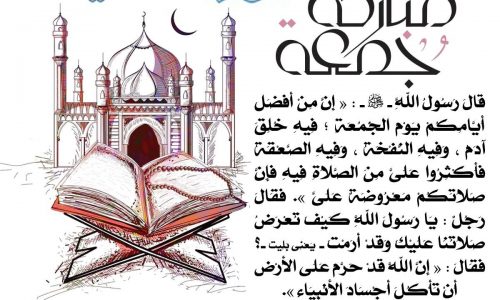 جمعة
مباركة
قال رسول الله ـ ﷺ ـ : « إن من أفضل
أيامكم يوم الجمعة ؛ فيه خلق
آدم ، وفيه النفخة ، وفيه الصعقة
فأكثروا علي من الصلاة فيه فإن
صلاتكم معروضة علي ». فقال
رجل : يا رسول الله كيف تعرض
صلاتنا عليك وقد أرمت ـ يعنى بليت ـ؟
فقال : « إن الله قد حرم على الأرض
أن تأكل أجساد الأنبياء ».